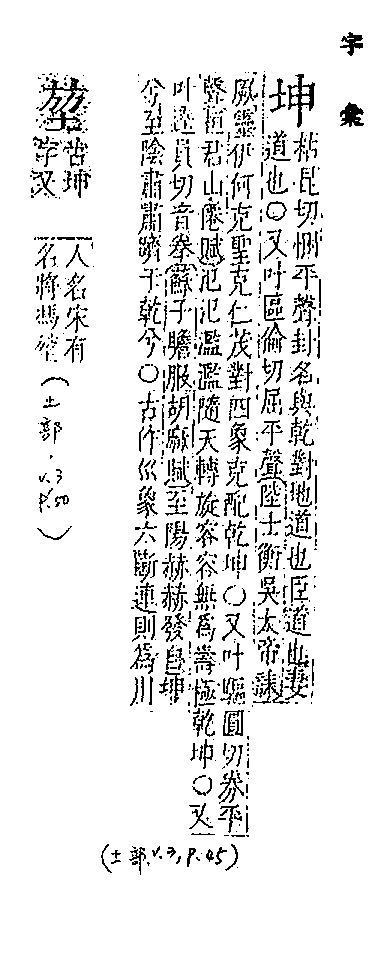 字彙
坤
枯昆切悃平聲卦名與乾對地道也臣道也妻
道也○又叶區倫切屈平聲陸士衡吳太帝誄
厥靈伊何克聖克仁茂對四象克配乾坤○又叶驅圓切劵平
聲桓君山僊賦氾氾濫濫隨天轉旋容容無為壽極乾坤○又
叶逵員切音拳蘇子瞻服胡麻賦至陽赫赫發自坤
兮至陰肅肅躋于乾兮○古作巛象六斷連則為川
(土部,v.3,P.45)
古坤
字又
人名宋有
名將馮
(土部,v.3
P.50)